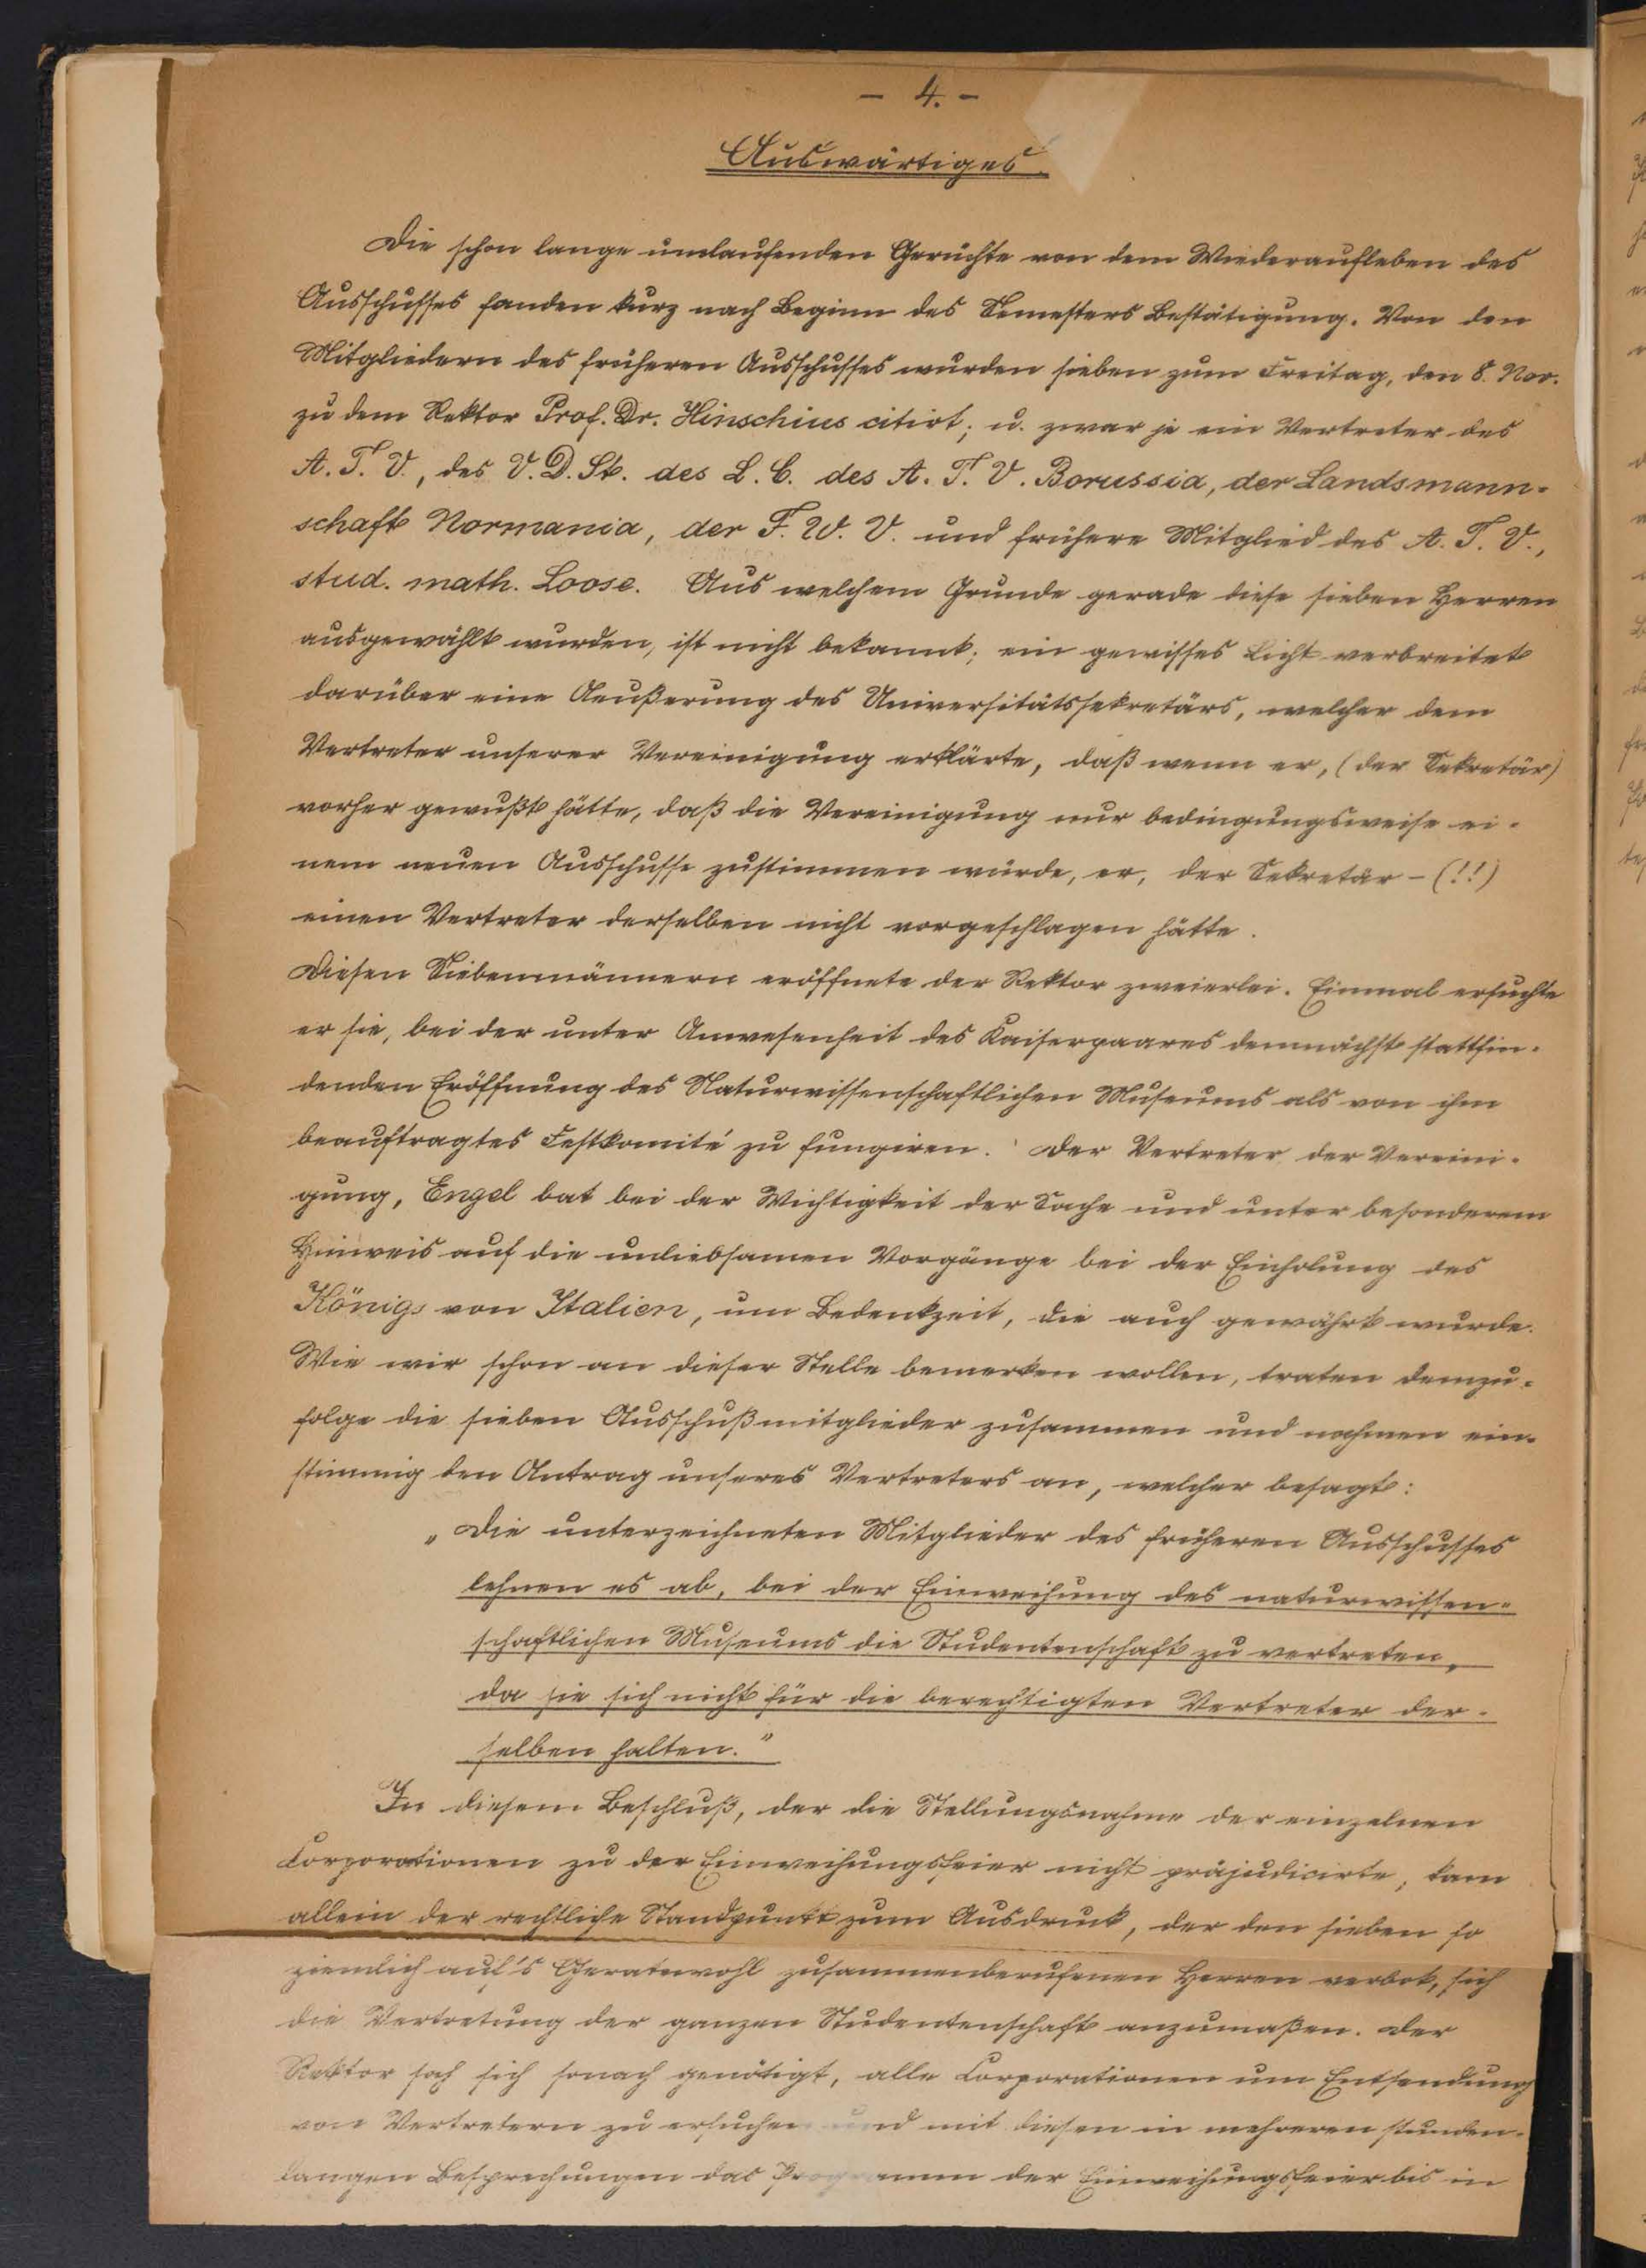 - 4. -
Auswärtiges.
Die schon lange umlaufenden Gerüchte von dem Wiederaufleben des
Ausschusses fanden kurz nach Beginn des Semesters Bestätigung. Von den
Mitgliedern des früheren Ausschusses wurden sieben zum Freitag, den 8. Nov.
zu dem Rektor Prof. Dr. Hinschius citirt; u. zwar je ein Vertreter des
A. T. V., des V. D. St. des L. C. des A. T. V. Borussia, der Landsmann-
schaft Normania, der F. W. V. und frühere Mitglied des A. T. V.,
stud. math. Loose. Aus welchem Grunde gerade diese sieben Herren
ausgewählt wurden, ist nicht bekannt; ein gewisses Licht verbreitet
darüber eine Aeußerung des Universitätssekretärs, welcher dem
Vertreter unserer Vereinigung erklärte, daß wenn er, (der Sekretär)
vorher gewußt hätte, daß die Vereinigung nur bedingungsweise ei-
nem neuen Ausschusse zustimmen würde, er, der Sekretär - (!!)
einen Vertreter derselben nicht vorgeschlagen hätte.
Diesen Siebenmännern eröffnete der Rektor zweierlei. Einmal ersuchte
er sie, bei der unter Anwesenheit des Kaiserpaares demnächst stattfin-
denden Eröffnung des Naturwissenschaftlichen Museums als von ihm
beauftragtes Festkomité zu fungiren. Der Vertreter der Vereini-
gung, Engel bat bei der Wichtigkeit der Sache und unter besonderem
Hinweis auf die unliebsamen Vorgänge bei der Einholung des
Königs von Italien, um Bedenkzeit, die auch gewährt wurde.
Wie wir schon an dieser Stelle bemerken wollen, traten demzu-
folge die sieben Ausschußmitglieder zusammen und nahmen ein-
stimmig den Antrag unseres Vertreters an, welcher besagt:
„Die unterzeichneten Mitglieder des früheren Ausschusses
lehnen es ab, bei der Einweihung des naturwissen-
schaftlichen Museums die Studentenschaft zu vertreten,
da sie sich nicht für die berechtigten Vertreter der-
selben halten."
In diesem Beschluß, der die Stellungsnahme der einzelnen
Corporationen zu der Einweihungsfeier nicht präjudicirte, kam
allein der rechtliche Standpunkt zum Ausdruck, der den sieben so
ziemlich auf's Geratewohl zusammenberufenen Herren verbot, sich
die Vertretung der ganzen Studentenschaft anzumaßen. Der
Rektor sah sich sonach genötigt, alle Corporationen um Entsendung
von Vertretern zu ersuchen und mit diesen in mehreren stunden-
langen Besprechungen das Programm der Einweihungsfeier bis in